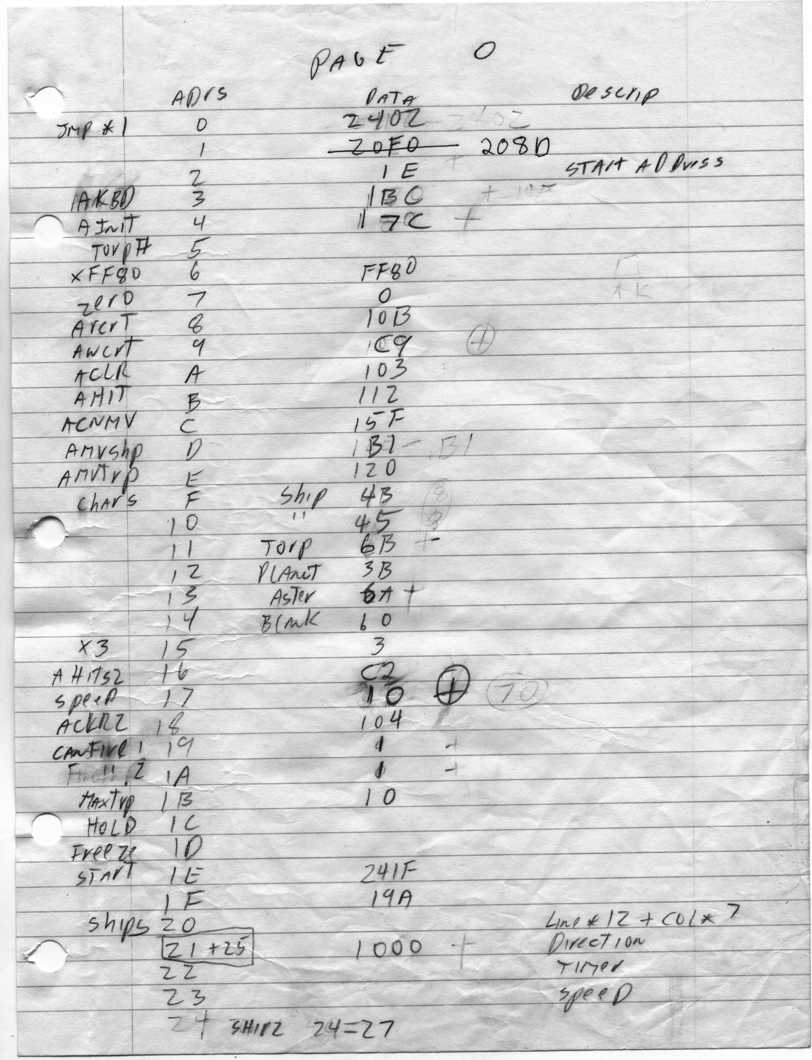 PAGE 0
ADrS DATA Descrip
JMP *1 0 2402 2402
1 20F0 208D
2 1E + START ADDress
IAKBD 3 1BC +
AInit 4 17C +
Torp# 5
xFF80 6 FF80
zero 7 0
Arcrt 8 10B
Awcrt 9 1C9 +
ACLR A 103
AHIT B 112
ACNMV C 15F
AMVshp D 1B1 - .B1
AMVTrp E 120
Chars F Ship 4B
10 " 45
11 Torp 6B +
12 PLAnet 3B
13 Aster 6A +
14 Blnk 60
X3 15 3
AHITS2 16 C2
speed 17 10 + 70
ACLR2 18 104
CANFIRE 1 19 1 +
2 1A 1 +
MaxTrp 1B 10
HOLD 1C
Freeze 1D
START 1E 241F
1F 19A
Ships 20 Line * 12 + COL * 7
21 + 25 1000 + Direction
22 Timer
23 SpeeD
24 SHIP2 24=27